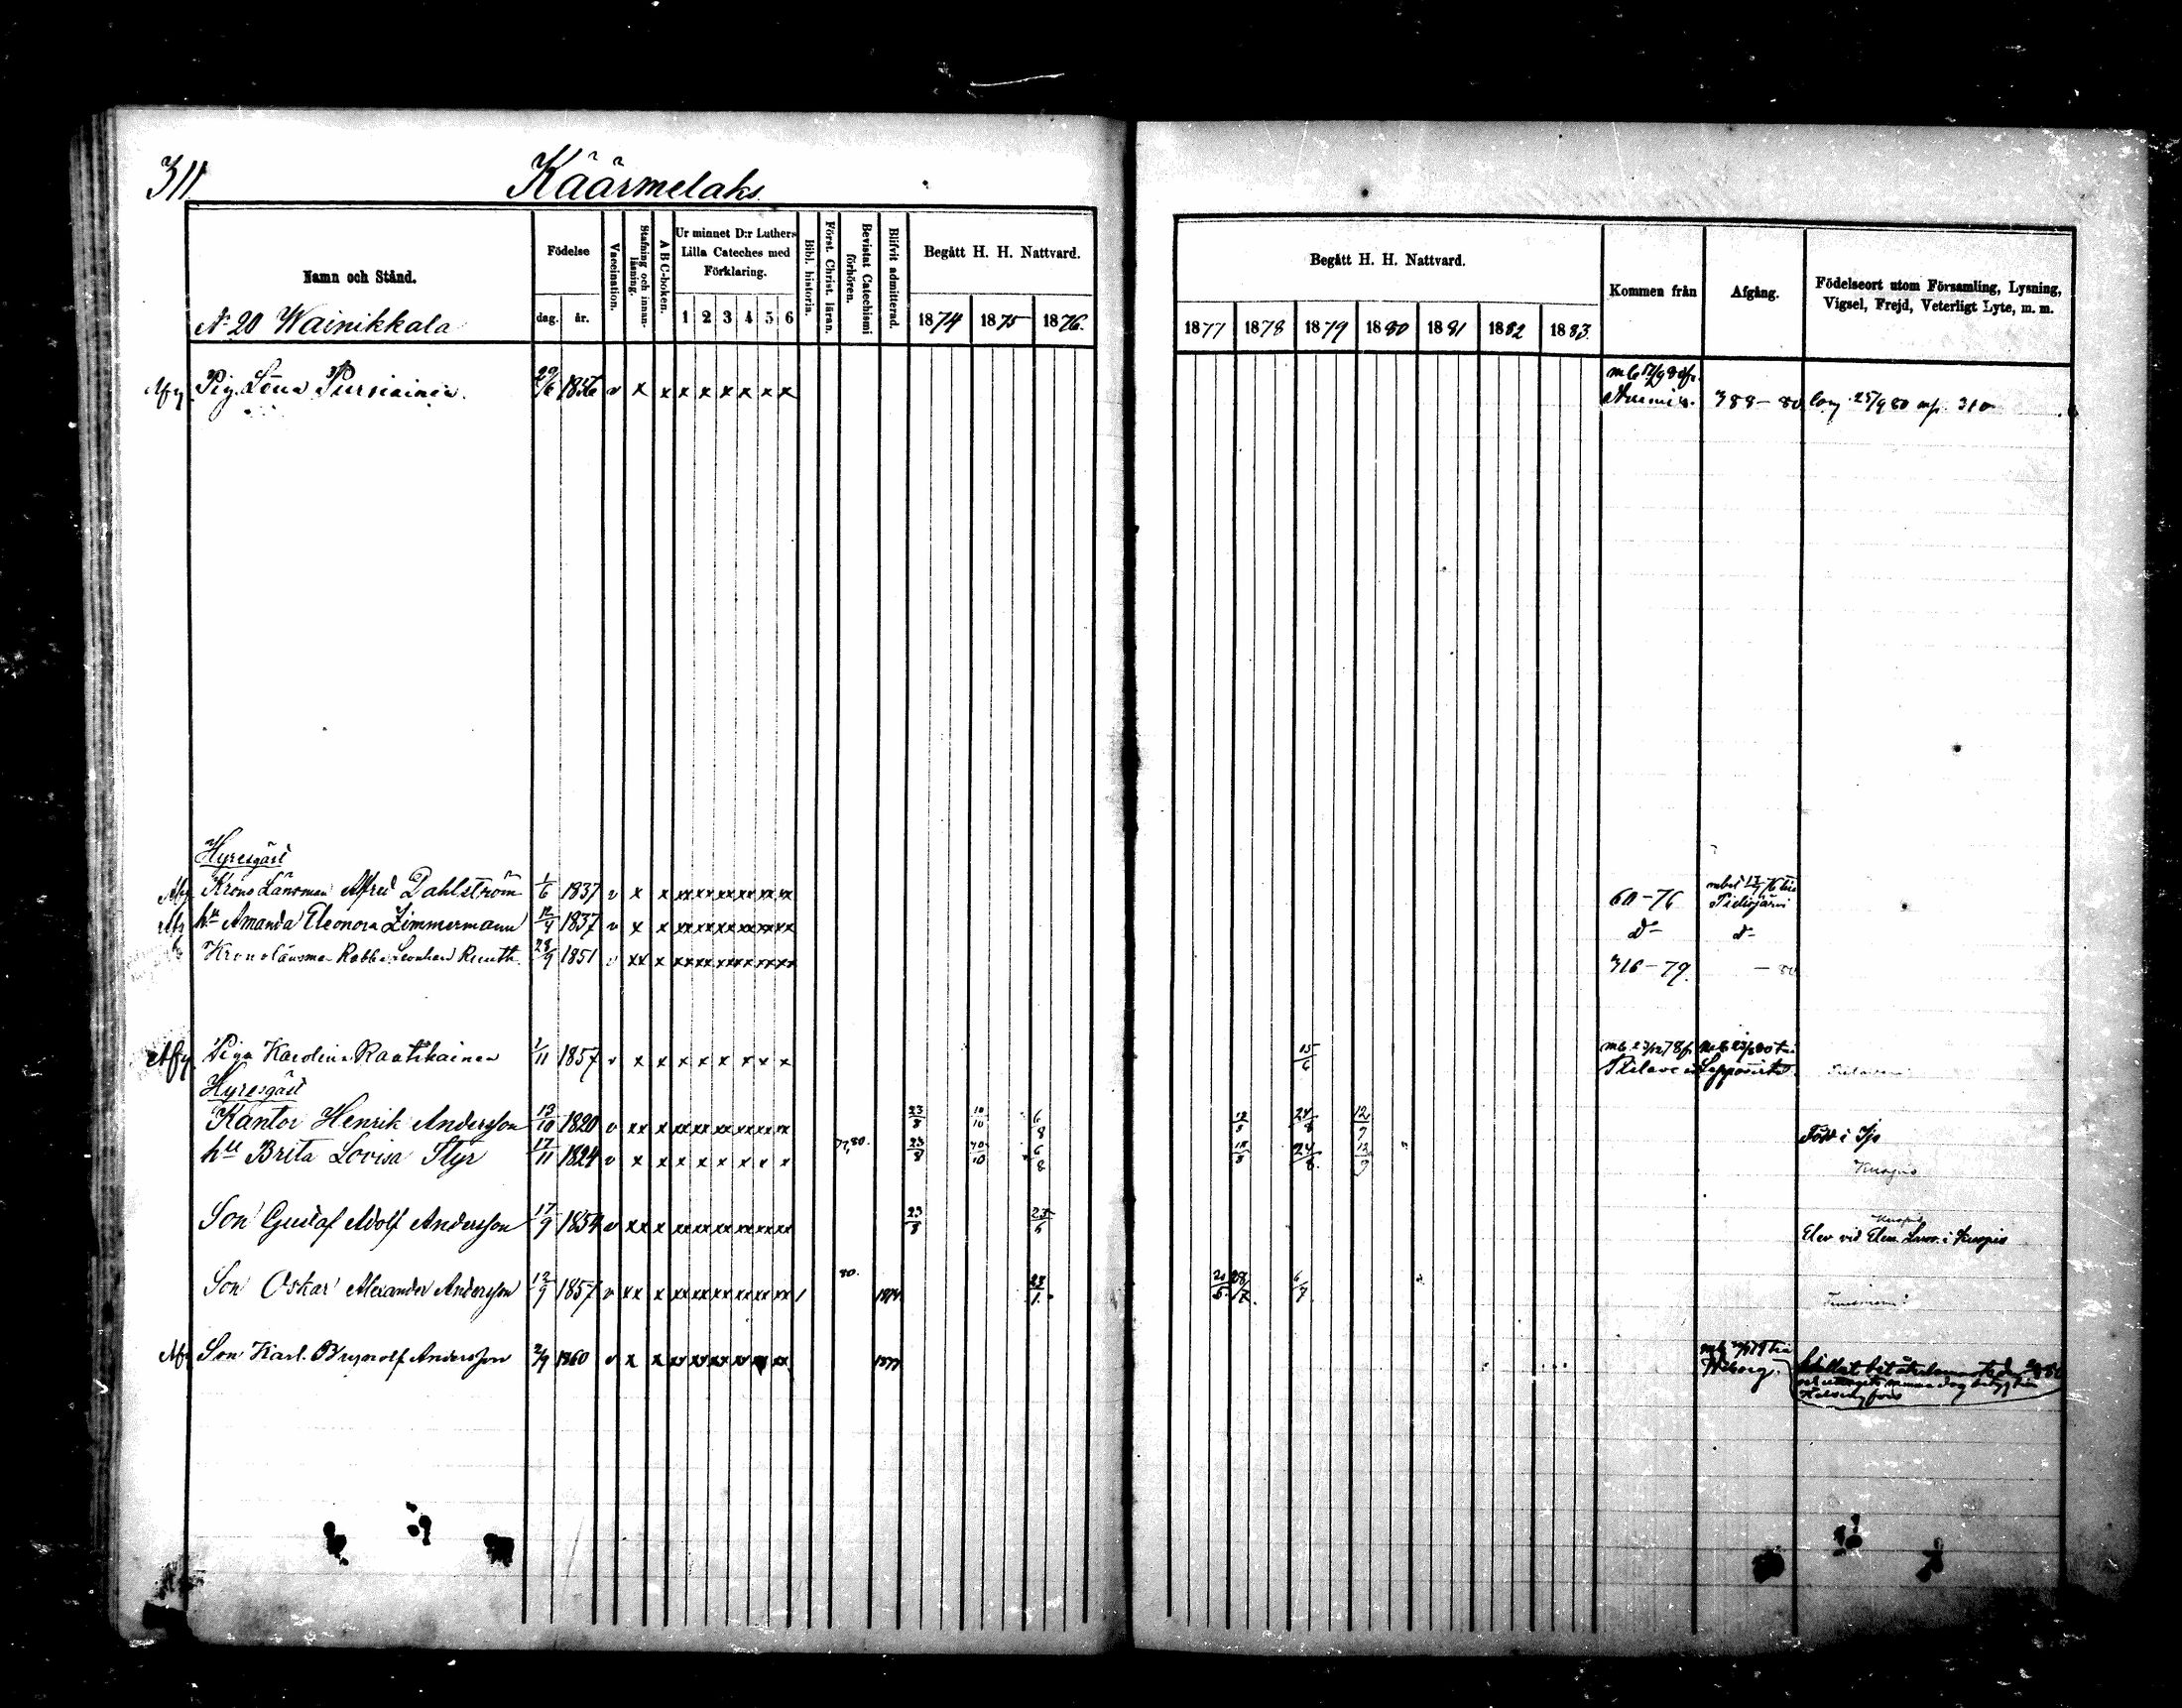 311.
Käärmelaks.
Namn och Stånd.
Födelse
dag. år.
Vaccination.
Stafning och innanläsning.
A B C-boken.
Ur minnet D:r Luthers Lilla Cateches med Förklaring.
1 2 3 4 5 6
Bibl. historia.
Först. Christ. läran.
Bevistat Catechismi förhören.
Blifvit admitterad.
Begått H. H. Nattvard.
1874 1875 1876.
Begått H. H. Nattvard.
1877 1878 1879 1880 1881 1882 1883.
Kommen från
Afgång.
Födelseort utom Församling, Lysning, Vigsel, Frejd, Veterligt Lyte, m. m.
N 20 Wainikkala
Afg Pig. Lena Pursiainen. 29/6 1856 v x x x x x x x x 388-80 25/9 80 310
Hyresgäst
Afg Krono Länsman Alfred Dahlström 1/6 1837 v x x xx xx xx xx xx xx 60-76 Pielisjärvi
Afg hu Amanda Eleonora Zimmermann 12/4 1837 v x x xx xx xx xx xx xx d- d-
Kronolänsman Robb. Leonhard Ruuth 28/9 1851 v xx x xx xx xx xx xx xx 316-79. -80
Afg Piga Karolina Raatikainen 1/11 1857 v x x x x x x x x 15/6 Pielavesi Leppävirta
Hyresgäst
Kantor Henrik Andersson 13/10 1820 v xx x xx xx xx xx xx xx 23/8 10/10 6/8 18/8 24/8 12/9 Född i Ijo
hu Brita Lovisa Styr 17/11 1824 v x x x x x x x x 77,80. 23/8 10/10 6/8 18/8 24/8 12/9 Kuopio
Son Gustaf Adolf Andersson 17/9 1854 v xx x xx xx xx xx xx xx 23/8 25/6 Kuopio
Elev vid Elem. Lärov. i Kuopio
Son Oskar Alexander Andersson 12/9 1857 v xx x xx xx xx xx xx xx / 80. 1874 28/1. 20/5. 28/7. 6/7
Afg Son Karl Brynolf Andersson 2/9 1860 v x x xx xx xx xx xx 1877 Wiborg.
Helsingfors